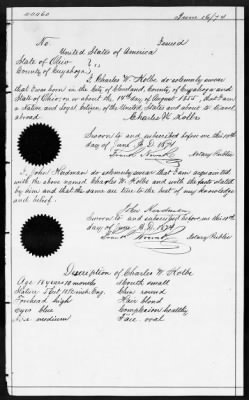 40060
June 16/74
No. Issued
United States of America
State of Ohio } ss
County of Cuyahoga
I, Charles W. Kolbe do solemnly swear
that I was born in the City of Cleveland, County of Cuyahoga and
State of Ohio, on or about the 14th day of August 1855, that I am
a Native and Loyal Citizen of the United States and about to travel
abroad
Charles W Kolbe
Sworn to and subscribed before me this 10th
day of June A.D. 1874
Notary Public
I, John do solemnly swear that I am acquainted
with the above named Charles W. Kolbe and with the facts stated
by him and that the same are true to the best of my knowledge
and belief.
John
Sworn to and subscribed before me this 10th
day of June A.D. 1874
Notary Public
Description of Charles W. Kolbe
Age 18 years 10 months Mouth small
Stature 5 feet inch Eng. Chin round
Forehead high Hair blond
Eyes blue Complexion healthy
Nose medium Face oval